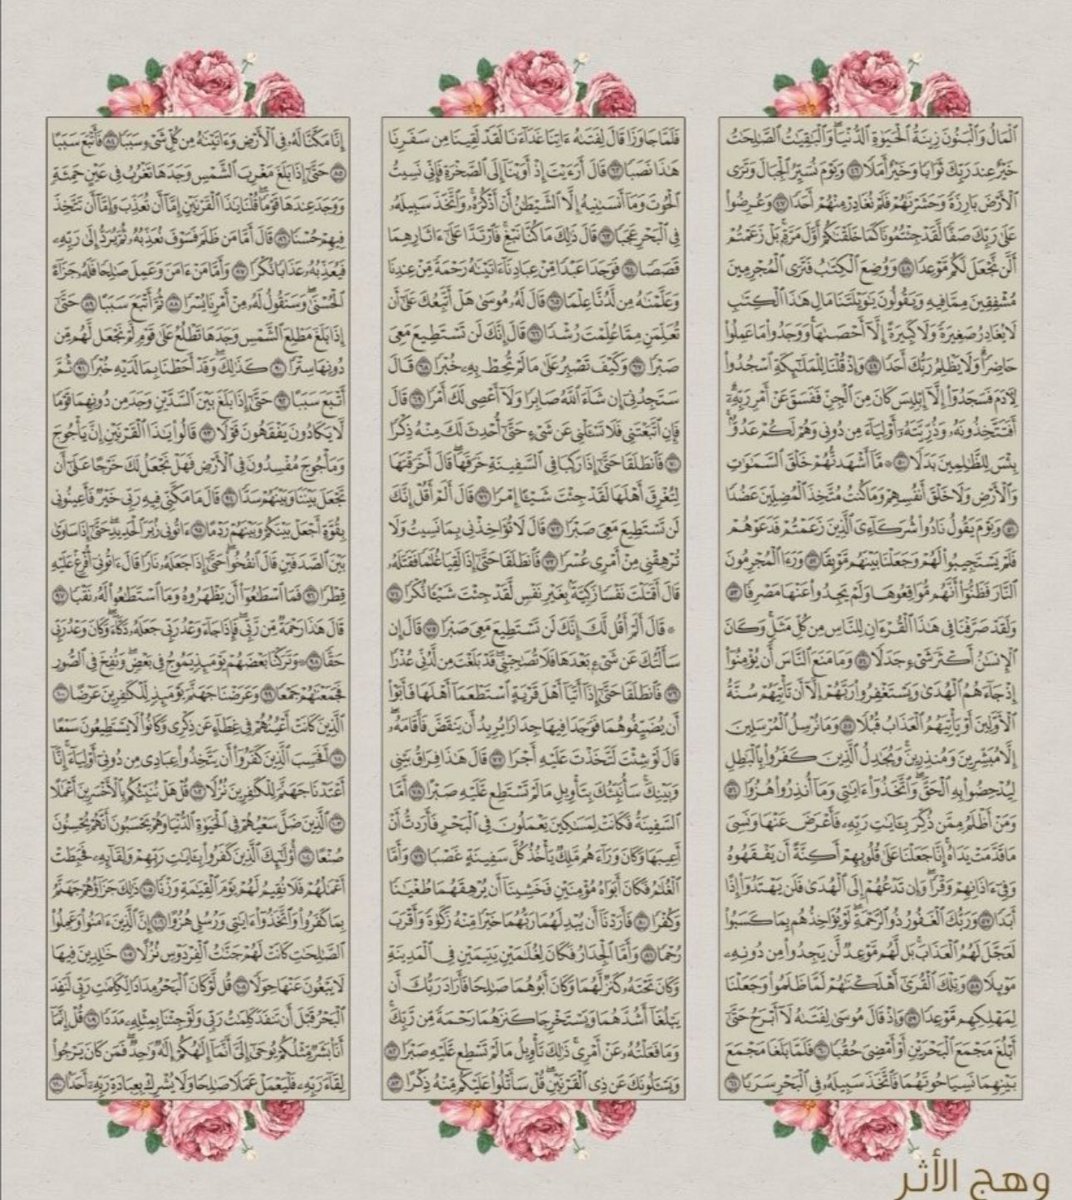 المال والبنون زينة الحيوة الدنيا والبقيت الصلحت
خير عند ربك ثوابا وخير أملا ٤٦ ويوم نسير الجبال وترى
الأرض بارزة وحشرنهم فلم نغادر منهم أحدا ٤٧ وعرضوا
على ربك صفا لقد جئتمونا كما خلقنكم أول مرة بل زعمتم
ألن نجعل لكم موعدا ٤٨ ووضع الكتب فترى المجرمين
مشفقين مما فيه ويقولون يويلتنا مال هذا الكتب
لا يغادر صغيرة ولا كبيرة إلا أحصىها ووجدوا ما عملوا
حاضرا ولا يظلم ربك أحدا ٤٩ وإذ قلنا للملئكة اسجدوا
لءادم فسجدوا إلا إبليس كان من الجن ففسق عن أمر ربه
أفتتخذونه وذريته أولياء من دوني وهم لكم عدو
بئس للظلمين بدلا ٥٠ ۞ ما أشهدتهم خلق السموت
والأرض ولا خلق أنفسهم وما كنت متخذ المضلين عضدا
٥١ ويوم يقول نادوا شركاءي الذين زعمتم فدعوهم
فلم يستجيبوا لهم وجعلنا بينهم موبقا ٥٢ ورءا المجرمون
النار فظنوا أنهم مواقعوها ولم يجدوا عنها مصرفا ٥٣
ولقد صرفنا في هذا القرءان للناس من كل مثل وكان
الإنسن أكثر شيء جدلا ٥٤ وما منع الناس أن يؤمنوا
إذ جاءهم الهدى ويستغفروا ربهم إلا أن تأتيهم سنة
الأولين أو يأتيهم العذاب قبلا ٥٥ وما نرسل المرسلين
إلا مبشرين ومنذرين ويجدل الذين كفروا بالبطل
ليدحضوا به الحق واتخذوا ءايتي وما أنذروا هزوا ٥٦
ومن أظلم ممن ذكر بءايت ربه فأعرض عنها ونسي
ما قدمت يداه إنا جعلنا على قلوبهم أكنة أن يفقهوه
وفي ءاذانهم وقرا وإن تدعهم إلى الهدى فلن يهتدوا إذا
أبدا ٥٧ وربك الغفور ذو الرحمة لو يؤاخذهم بما كسبوا
لعجل لهم العذاب بل لهم موعد لن يجدوا من دونه
موئلا ٥٨ وتلك القرى أهلكنهم لما ظلموا وجعلنا
لمهلكهم موعدا ٥٩ وإذ قال موسى لفتىه لا أبرح حتى
أبلغ مجمع البحرين أو أمضي حقبا ٦٠ فلما بلغا مجمع
بينهما نسيا حوتهما فاتخذ سبيله في البحر سربا ٦١
فلما جاوزا قال لفتىه ءاتنا غداءنا لقد لقينا من سفرنا
هذا نصبا ٦٢ قال أرءيت إذ أوينا إلى الصخرة فإني نسيت
الحوت وما أنسىنيه إلا الشيطن أن أذكره واتخذ سبيله
في البحر عجبا ٦٣ قال ذلك ما كنا نبغ فارتدا على ءاثارهما
قصصا ٦٤ فوجدا عبدا من عبادنا ءاتينه رحمة من عندنا
وعلمنه من لدنا علما ٦٥ قال له موسى هل أتبعك على أن
تعلمن مما علمت رشدا ٦٦ قال إنك لن تستطيع معي
صبرا ٦٧ وكيف تصبر على ما لم تحط به خبرا ٦٨ قال
ستجدني إن شاء الله صابرا ولا أعصي لك أمرا ٦٩ قال
فإن اتبعتني فلا تسئلني عن شيء حتى أحدث لك منه ذكرا
٧٠ فانطلقا حتى إذا ركبا في السفينة خرقها قال أخرقتها
لتغرق أهلها لقد جئت شيئا إمرا ٧١ قال ألم أقل إنك
لن تستطيع معي صبرا ٧٢ قال لا تؤاخذني بما نسيت ولا
ترهقني من أمري عسرا ٧٣ فانطلقا حتى إذا لقيا غلما فقتله
قال أقتلت نفسا زكية بغير نفس لقد جئت شيئا نكرا ٧٤
۞ قال ألم أقل لك إنك لن تستطيع معي صبرا ٧٥ قال إن
سألتك عن شيء بعدها فلا تصحبني قد بلغت من لدني عذرا
٧٦ فانطلقا حتى إذا أتيا أهل قرية استطعما أهلها فأبوا
أن يضيفوهما فوجدا فيها جدارا يريد أن ينقض فأقامه
قال لو شئت لتخذت عليه أجرا ٧٧ قال هذا فراق بيني
وبينك سأنبئك بتأويل ما لم تستطع عليه صبرا ٧٨ أما
السفينة فكانت لمسكين يعملون في البحر فأردت أن
أعيبها وكان وراءهم ملك يأخذ كل سفينة غصبا ٧٩ وأما
الغلم فكان أبواه مؤمنين فخشينا أن يرهقهما طغينا
وكفرا ٨٠ فأردنا أن يبدلهما ربهما خيرا منه زكوة وأقرب
رحما ٨١ وأما الجدار فكان لغلمين يتيمين في المدينة
وكان تحته كنز لهما وكان أبوهما صلحا فأراد ربك أن
يبلغا أشدهما ويستخرجا كنزهما رحمة من ربك
وما فعلته عن أمري ذلك تأويل ما لم تسطع عليه صبرا ٨٢
ويسئلونك عن ذي القرنين قل سأتلوا عليكم منه ذكرا ٨٣
إنا مكنا له في الأرض وءاتينه من كل شيء سببا ٨٤ فأتبع سببا
٨٥ حتى إذا بلغ مغرب الشمس وجدها تغرب في عين حمئة
ووجد عندها قوما قلنا يذا القرنين إما أن تعذب وإما أن تتخذ
فيهم حسنا ٨٦ قال أما من ظلم فسوف نعذبه ثم يرد إلى ربه
فيعذبه عذابا نكرا ٨٧ وأما من ءامن وعمل صلحا فله جزاء
الحسنى وسنقول له من أمرنا يسرا ٨٨ ثم أتبع سببا ٨٩ حتى
إذا بلغ مطلع الشمس وجدها تطلع على قوم لم نجعل لهم من
دونها سترا ٩٠ كذلك وقد أحطنا بما لديه خبرا ٩١ ثم
أتبع سببا ٩٢ حتى إذا بلغ بين السدين وجد من دونهما قوما
لا يكادون يفقهون قولا ٩٣ قالوا يذا القرنين إن يأجوج
ومأجوج مفسدون في الأرض فهل نجعل لك خرجا على أن
تجعل بيننا وبينهم سدا ٩٤ قال ما مكني فيه ربي خير فأعينوني
بقوة أجعل بينكم وبينهم ردما ٩٥ ءاتوني زبر الحديد حتى إذا ساوى
بين الصدفين قال انفخوا حتى إذا جعله نارا قال ءاتوني أفرغ عليه
قطرا ٩٦ فما اسطعوا أن يظهروه وما استطعوا له نقبا ٩٧
قال هذا رحمة من ربي فإذا جاء وعد ربي جعله دكاء وكان وعد ربي
حقا ٩٨ ۞ وتركنا بعضهم يومئذ يموج في بعض ونفخ في الصور
فجمعنهم جمعا ٩٩ وعرضنا جهنم يومئذ للكفرين عرضا ١٠٠
الذين كانت أعينهم في غطاء عن ذكري وكانوا لا يستطيعون سمعا
١٠١ أفحسب الذين كفروا أن يتخذوا عبادي من دوني أولياء إنا
أعتدنا جهنم للكفرين نزلا ١٠٢ قل هل ننبئكم بالأخسرين أعملا
١٠٣ الذين ضل سعيهم في الحيوة الدنيا وهم يحسبون أنهم يحسنون
صنعا ١٠٤ أولئك الذين كفروا بءايت ربهم ولقائه فحبطت
أعملهم فلا نقيم لهم يوم القيمة وزنا ١٠٥ ذلك جزاؤهم جهنم
بما كفروا واتخذوا ءايتي ورسلي هزوا ١٠٦ إن الذين ءامنوا وعملوا
الصلحت كانت لهم جنت الفردوس نزلا ١٠٧ خلدين فيها
لا يبغون عنها حولا ١٠٨ قل لو كان البحر مدادا لكلمت ربي لنفد
البحر قبل أن تنفد كلمت ربي ولو جئنا بمثله مددا ١٠٩ قل إنما
أنا بشر مثلكم يوحى إلي أنما إلهكم إله وحد فمن كان يرجوا
لقاء ربه فليعمل عملا صلحا ولا يشرك بعبادة ربه أحدا ١١٠
وهج الأثر